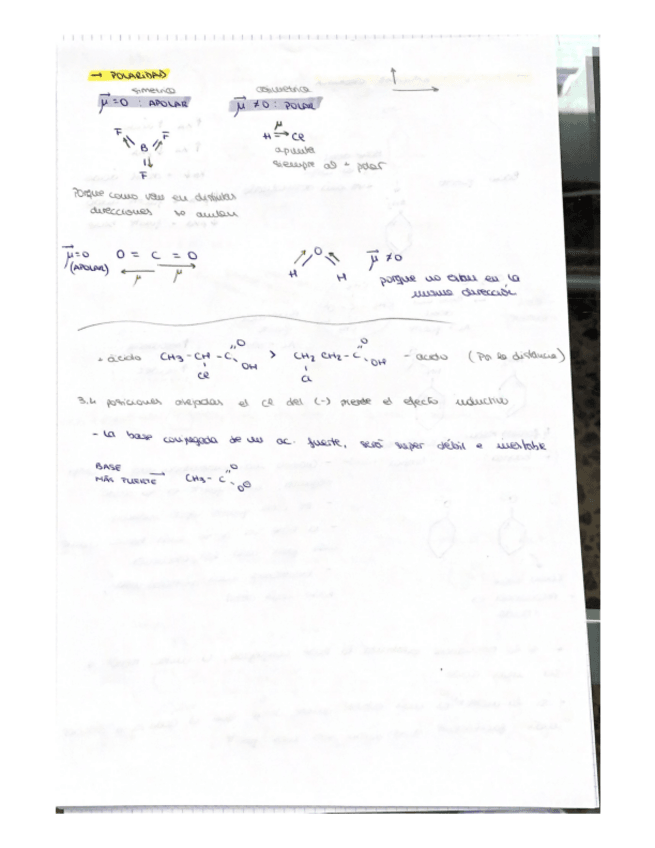 → POLARIDAD
simétrico asimétrico
μ = 0 : APOLAR μ ≠ 0 : POLAR
F F
B
F
μ
H Cl
apunta
siempre al + polar
Porque como van en distintas
direcciones se anulan
μ = 0 O = C = O
(APOLAR) μ μ
O
H H
μ ≠ 0
porque no están en la
misma dirección
+ ácido CH3 - CH - C O OH > CH2 CH2 - C O OH - ácido (Por la distancia)
Cl Cl
3.4 posiciones alejadas el Cl del (-) pierde el efecto inductivo
- La base conjugada de un ác. fuerte, será super débil e inestable
BASE
MÁS FUERTE → CH3 - C O O⊖